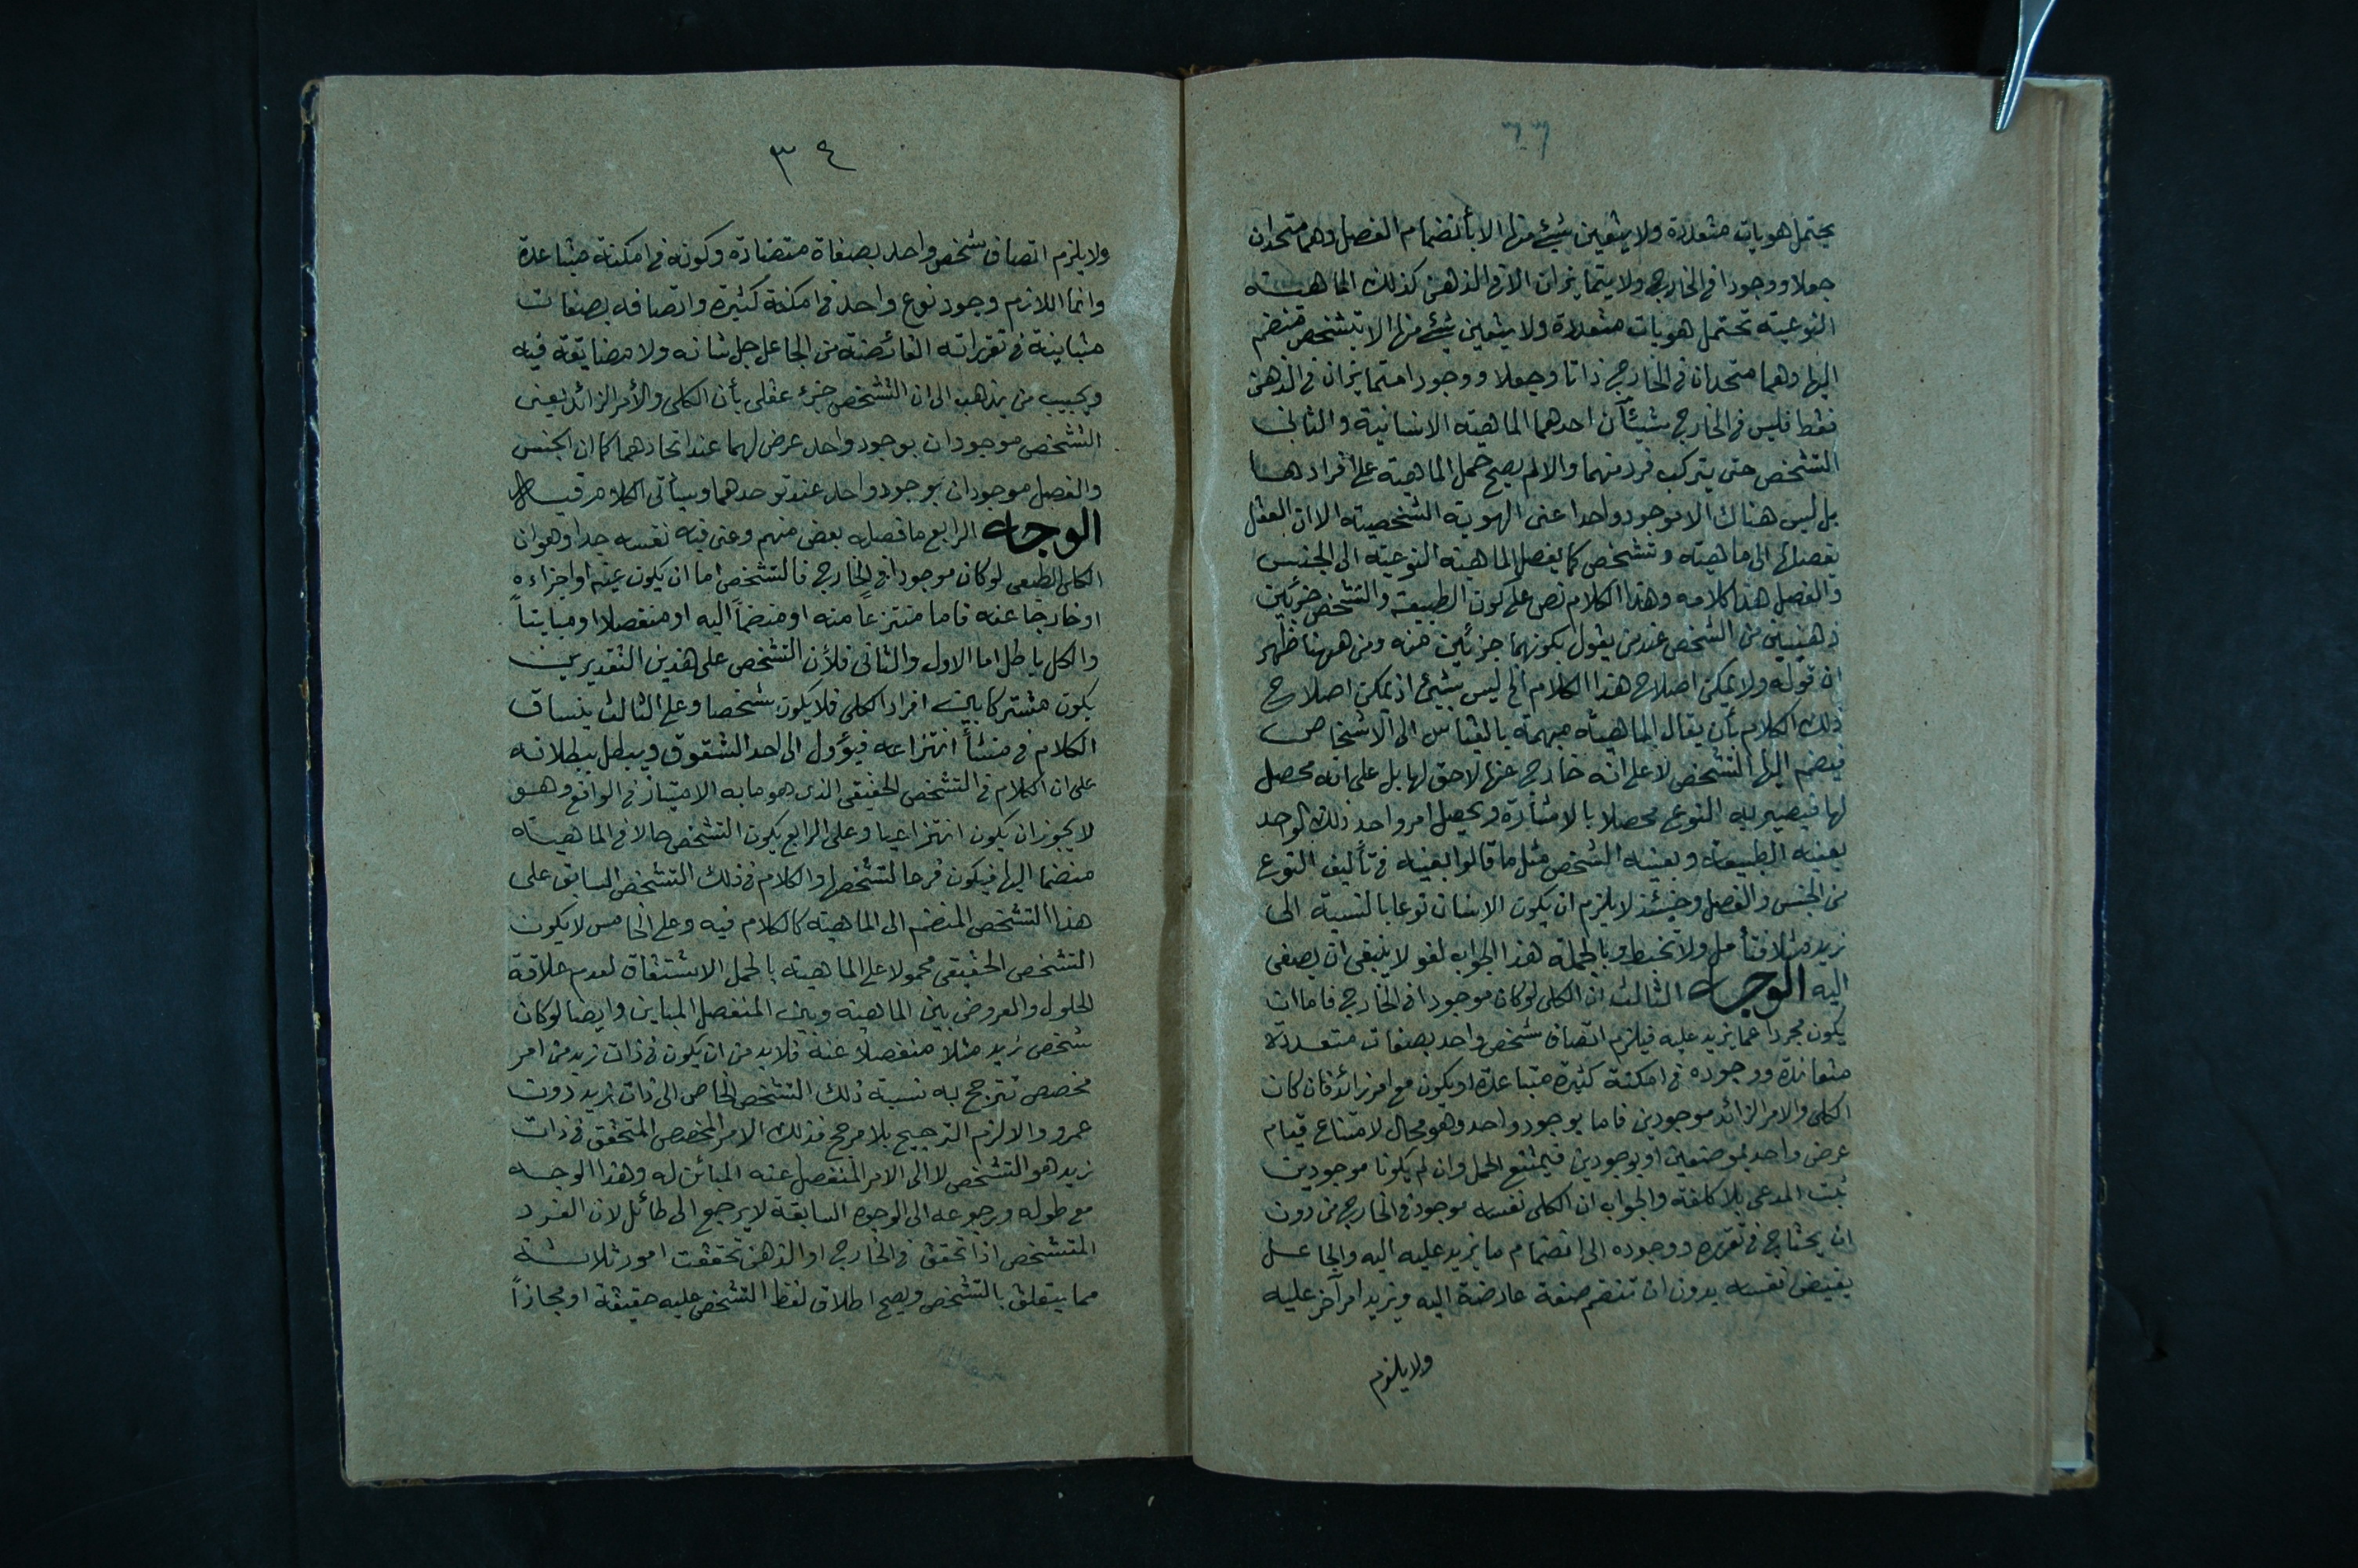 يحتمل هويات متعددة ولا يتعين شيئ منها الا بأنضمام الفصل وهما متحدان
جعلا ووجودا فى الخارج ولا يتمايزان الا فى الذهن كذلك الماهية
النوعية تحتمل هويات متعددة ولا يتعين شئ منها الا بتشخص منضم
اليها وهما متحدان فى الخارج ذاتا وجعلا ووجودا متمايزان فى الذهن
فقط فليس فى الخارج شيئآن احدهما الماهية الانسانية والثانى
التشخص حتى يتركب فرد منهما والا لم يصح حمل الماهية على افرادها
بل ليس هناك الا موجود واحد اعنى الهوية الشخصية الا ان العقل
يفصلها الى ماهية وتشخص كما يفصل الماهية النوعية الى الجنس
والفصل هذا كلامه وهذا الكلام نص على كون الطبيعة والتشخص جزئين
ذهنيين من الشخص عند من يقول بكونهما جزئين منه ومن ههنا ظهر
ان قوله ولا يمكن اصلاح هذا الكلام الخ ليس بشيئ اذ يمكن اصلاح
ذلك الكلام بأن يقال الماهية مبهمة بالقياس الى الاشخاص
فينضم اليها التشخص لا على انه خارج عنها لاحق لها بل على انه محصل
لها فيصير به النوع محصلا بالاشارة ويحصل امر واحد ذلك الوحد
بعينه الطبيعة وبعينه الشخص مثل ما قالوا بعينه فى تأليف النوع
من الجنس والفصل وحينئذ لا يلزم ان يكون الانسان نوعا بالنسبة الى
زيد مثلا فتأمل ولا تخبط وبالجملة هذا الجواب لغو لا ينبغى ان يصغى
اليه الوجه الثالث ان الكلى لو كان موجودا فى الخارج فاما ان
يكون مجردا عما يزيد عليه فيلزم اتصاف شخص واحد بصفات متعددة
متعاندة ووجوده فى امكنة كثيرة متباعدة او يكون مع امر زائد فان كان
الكلى والامر الزائد موجودين فاما بوجود واحد وهو محال لامتناع قيام
عرض واحد بموضعين او بوجودين فيمتنع الحمل وان لم يكونا موجودين
ثبت المدعى بلا كلفة والجواب ان الكلى نفسه موجود فى الخارج من دون
ان يحتاج فى تقرره ووجوده الى انضمام ما يزيد عليه اليه والجاعل
يفيض نفسه بدون ان تنضم صفة عارضة اليه ويزيد امر آخر عليه
ولا يلزم
٣٤
ولا يلزم اتصاف شخص واحد بصفاة متضادة وكونه فى امكنة متباعدة
وانما اللازم وجود نوع واحد فى امكنة كثيرة واتصافه بصفات
متباينة فى تقرراته الفائضة من الجاعل جل شانه ولا مضايقة فيه
ويجيب من يذهب الى ان التشخص جزء عقلى بأن الكلى والأمر الزائد يعنى
التشخص موجودان بوجود واحد عرض لهما عند اتحادهما كما ان الجنس
والفصل موجودان بوجود واحد عند توحدهما وسيأتى الكلام فيه
الوجه الرابع ما فصله بعض منهم وعنى فيه نفسه جدا وهو ان
الكلى الطبعى لو كان موجودا فى الخارج فالتشخص اما ان يكون عينه او اجزاءه
او خارجا عنه فاما منتزعاً منه او منضماً اليه او منفصلا او مبايناً
والكل باطل اما الاول والثانى فلأن التشخص على هذين التقديرين
يكون مشتركا بين افراد الكلى فلا يكون شخصا وعلى الثالث ينساق
الكلام فى منشأ انتزاعه فيؤول الى احد الشقوق ويبطل ببطلانه
على ان الكلام فى التشخص الحقيقى الذى هو ما به الامتياز فى الواقع وهو
لا يجوز ان يكون انتزاعيا وعلى الرابع يكون التشخص حالا فى الماهية
منضما اليها فيكون فرعا لتشخصها والكلام فى ذلك التشخص السابق على
هذا التشخص المنضم الى الماهية كالكلام فيه وعلى الخامس لا يكون
التشخص الحقيقى محمولا على الماهية بالحمل الاشتقاق لعدم علاقة
الحلول والعروض بين الماهية وبين المنفصل المباين وايضا لو كان
شخص زيد مثلا منفصلا عنه فلا بد من ان يكون فى ذات زيد من امر
مخصص تترجح به نسبة ذلك التشخص الخاص الى ذات زيد دون
عمرو والا لزم الترجيح بلا مرجح فذلك الامر المخصص المتحقق فى ذات
زيد هو التشخص لا الى الامر المنفصل عنه المبائن له وهذا الوجه
مع طوله ورجوعه الى الوجوه السابقة لا يرجع الى طائل لان الفرد
المتشخص اذا تحقق فى الخارج او الذهن تحققت امور ثلاثة
مما يتعلق بالتشخص ويصح اطلاق لفظ التشخص عليه حقيقة او مجازاً